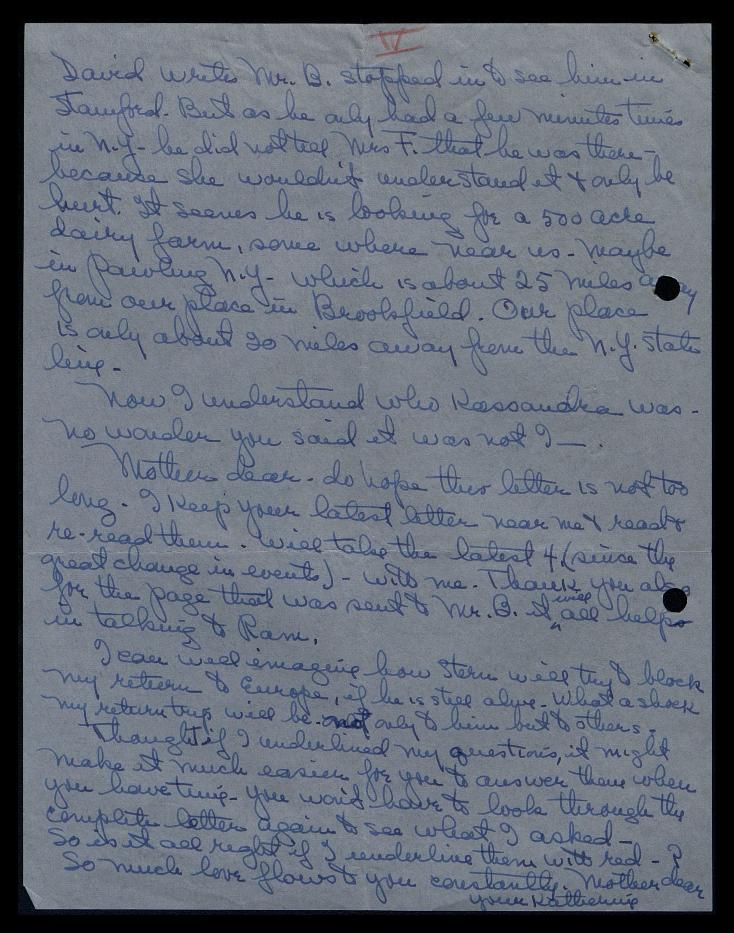 V
David writes Mr. B. stopped in to see him in
Stamford. But as he only had a few minutes times
in N.Y. he did not tell Mrs F. that he was there -
because she wouldn't understand it & only be
hurt. It seems he is looking for a 500 acre
dairy farm, some where near us - maybe
in Pawling N.Y. - which is about 25 miles away
from our place in Brookfield. Our place
is only about 20 miles away from the N.Y. State
line -
Now I understand who Kassandra was -
no wonder you said it was not I - .
Mother dear - do hope this letter is not too
long. I keep your latest letter near me & read &
re-read them. Will take the latest 4 (since the
great change in events) - with me. Thank you also
for the page that was sent to Mr. B. it will all help
in talking to Ram.
I can well imagine how Stern will try to block
my return to Europe, if he is still alive. What a shock
my return trip will be not only to him but to others.
Thought if I underlined my questions, it might
make it much easier for you to answer them when
you have time - you won't have to look through the
complete letter again to see what I asked -
So is it all right if I underline them with red - ?
So much love flows to you constantly. Mother dear
your Katherine